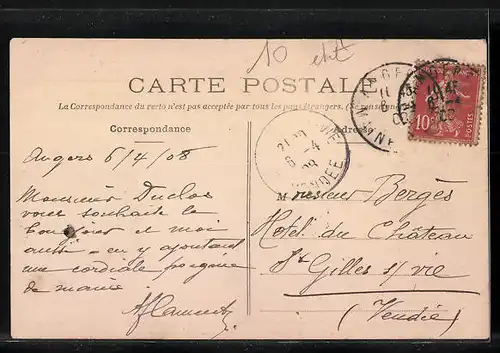 10
CARTE POSTALE
La Correspondance du recto n'est pas acceptée par tous les pays étrangers.
Correspondance
Adresse
Angers 6/4/08
Monsieur Duclos
vous souhaite le
bonjour et moi
aussi - en y ajoutant
une cordiale poignée
de main
21
6-4
08
VENDÉE
10
POSTES
Monsieur Bergès
Hotel du Château
St Gilles s/ vie
(Vendée)